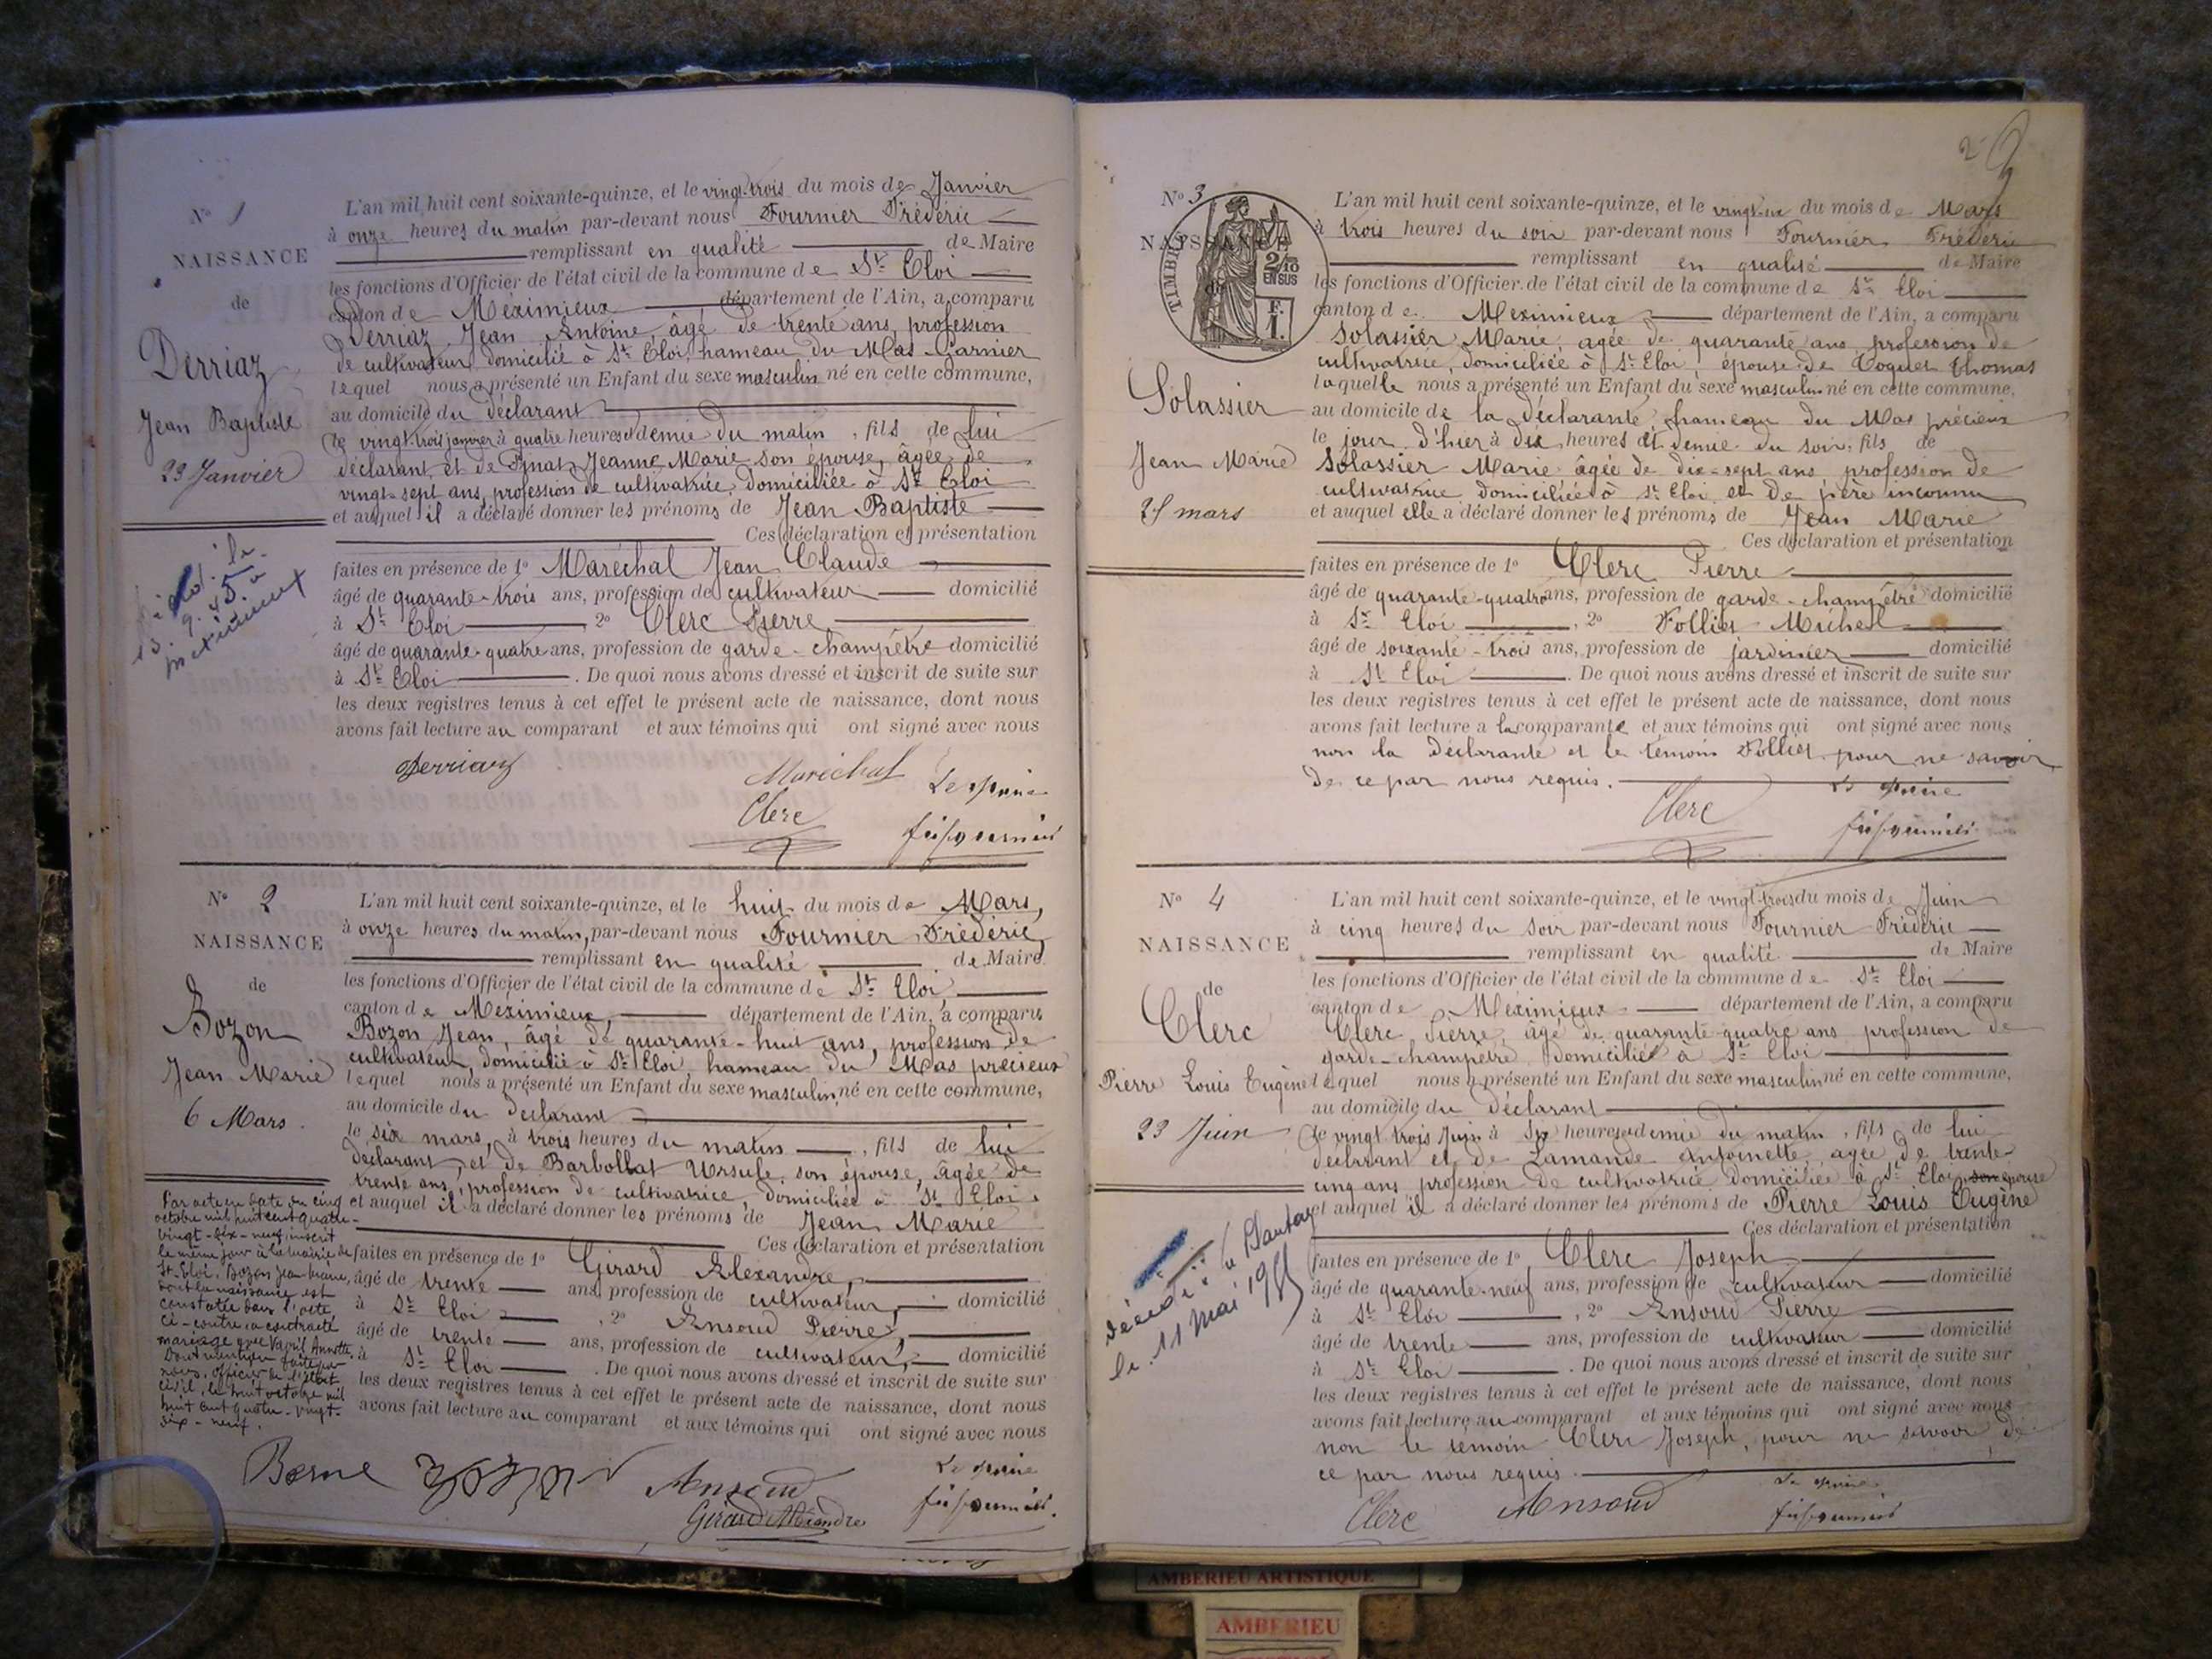 N° 1
NAISSANCE
de
Derriaz
Jean Baptiste
23 Janvier
L'an mil huit cent soixante-quinze, et le vingt-trois du mois de Janvier
à onze heures du matin par-devant nous Fournier Frédéric
remplissant en qualité de Maire
les fonctions d'Officier de l'état civil de la commune de St Eloi
canton de Méximieux département de l'Ain, a comparu
Derriaz Jean Antoine, âgé de trente ans, profession
de cultivateur domicilié à St Eloi, hameau du Mas-Garnier
lequel nous a présenté un Enfant du sexe masculin né en cette commune,
au domicile du déclarant
le vingt-trois janvier à quatre heures et demie du matin, fils de lui
déclarant et de Jeanne Marie son épouse, âgée de
vingt-sept ans, profession de cultivatrice, domiciliée à St Eloi
et auquel il a déclaré donner les prénoms de Jean Baptiste
Ces déclaration et présentation
faites en présence de 1° Maréchal Jean Claude
âgé de quarante-trois ans, profession de cultivateur domicilié
à St Eloi 2° Clerc Pierre
âgé de quarante-quatre ans, profession de garde-champêtre domicilié
à St Eloi . De quoi nous avons dressé et inscrit de suite sur
les deux registres tenus à cet effet le présent acte de naissance, dont nous
avons fait lecture au comparant et aux témoins qui ont signé avec nous
le
13.9.45 à
Meximieux
Derriaz
Maréchal
Le Maire
Clerc
N° 2
NAISSANCE
de
Bozon
Jean Marie
6 Mars.
L'an mil huit cent soixante-quinze, et le huit du mois de Mars,
à onze heures du matin, par-devant nous Fournier Frédéric,
remplissant en qualité de Maire
les fonctions d'Officier de l'état civil de la commune de St Eloi,
canton de Méximieux, département de l'Ain, a comparu
Bozon Jean, âgé de quarante-huit ans, profession de
cultivateur, domicilié à St Eloi, hameau du Mas précieux
lequel nous a présenté un Enfant du sexe masculin, né en cette commune,
au domicile du déclarant
le six mars, à trois heures du matin , fils de lui
déclarant, et de Barbollat Ursule, son épouse, âgée de
trente ans, profession de cultivatrice, domiciliée à St Eloi,
et auquel il a déclaré donner les prénoms de Jean Marie
Ces déclaration et présentation
faites en présence de 1° Girard Alexandre,
âgé de trente ans, profession de cultivateur, domicilié
à St Eloi , 2° Ansoud Pierre,
âgé de trente ans, profession de cultivateur, domicilié
à St Eloi . De quoi nous avons dressé et inscrit de suite sur
les deux registres tenus à cet effet le présent acte de naissance, dont nous
avons fait lecture au comparant et aux témoins qui ont signé avec nous
Par acte en date du cinq
octobre mil huit cent quatre-
vingt-dix-neuf, inscrit
le même jour à la mairie de
St-Eloi, Bozon Jean-Marie,
dont la naissance est
constatée dans l'acte
ci-contre, a contracté
mariage avec Annette.
Dont mention faite par
nous, officier de l'état
civil, le huit octobre mil
huit cent quatre-vingt-
dix-neuf.
Bozon
Ansoud
Le Maire
Girard Alexandre
2
N° 3
NAISSANCE
de
TIMBRE
2/10
EN SUS
F.
1.
Solassier
Jean Marie
21 mars
L'an mil huit cent soixante-quinze, et le vingt-un du mois de Mars
à trois heures du soir par-devant nous Fournier Frédéric
remplissant en qualité de Maire
les fonctions d'Officier de l'état civil de la commune de St Eloi
canton de Meximieux département de l'Ain, a comparu
Solassier Marie, agée de quarante ans, profession de
cultivatrice, domiciliée à St Eloi, épouse de Coquet Thomas
laquelle nous a présenté un Enfant du sexe masculin né en cette commune,
au domicile de la déclarante, hameau du Mas précieux
le jour d'hier à dix heures et demie du soir, fils de
Solassier Marie âgée de dix-sept ans profession de
cultivatrice domiciliée à St Eloi et de père inconnu
et auquel elle a déclaré donner les prénoms de Jean Marie
Ces déclaration et présentation
faites en présence de 1° Clerc Pierre
âgé de quarante-quatre ans, profession de garde-champêtre domicilié
à St Eloi , 2° Follier Michel
âgé de soixante-trois ans, profession de jardinier domicilié
à St Eloi . De quoi nous avons dressé et inscrit de suite sur
les deux registres tenus à cet effet le présent acte de naissance, dont nous
avons fait lecture a la comparante et aux témoins qui ont signé avec nous
non la déclarante et le témoin Follier pour ne savoir
de ce par nous requis.
Clerc
Le Maire
N° 4
NAISSANCE
de
Clerc
Pierre Louis Eugène
23 Juin
L'an mil huit cent soixante-quinze, et le vingt-trois du mois de Juin
à cinq heures du soir par-devant nous Fournier Frédéric
remplissant en qualité de Maire
les fonctions d'Officier de l'état civil de la commune de St Eloi
canton de Méximieux département de l'Ain, a comparu
Clerc Pierre, âgé de quarante-quatre ans profession de
garde-champêtre, domicilié à St Eloi
lequel nous a présenté un Enfant du sexe masculin né en cette commune,
au domicile du déclarant
le vingt trois Juin à six heures et demie du matin, fils de lui
déclarant et de Lamande Antoinette, agée de trente-
cinq ans profession de cultivatrice domiciliée à St Eloi, son épouse
et auquel il a déclaré donner les prénoms de Pierre Louis Eugène
Ces déclaration et présentation
faites en présence de 1° Clerc Joseph
âgé de quarante-neuf ans, profession de cultivateur domicilié
à St Eloi , 2° Ansoud Pierre
âgé de trente ans, profession de cultivateur domicilié
à St Eloi . De quoi nous avons dressé et inscrit de suite sur
les deux registres tenus à cet effet le présent acte de naissance, dont nous
avons fait lecture au comparant et aux témoins qui ont signé avec nous
non le témoin Clerc Joseph, pour ne savoir de
ce par nous requis.
Décédé à
le 11 Mai
Clerc
Ansoud
Le Maire
AMBERIEU ARTISTIQUE
AMBERIEU